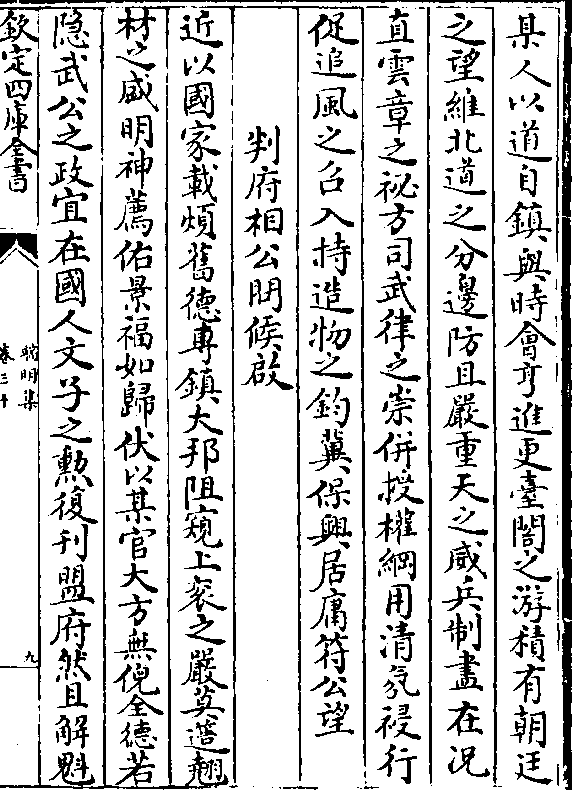 某人以道自鎮與時會亨進更臺閣之游積有朝廷
之望維北道之分邊防且嚴重天之威兵制盡在况
直雲章之祕方司武律之崇併授權綱用清氛祲行
促追風之召入持造物之鈞冀保興居庸符公望
判府相公問候啟
近以國家載煩舊德專鎮大邦阻窺上衮之嚴莫造翹
材之盛明神薦佑景福如歸伏以某官大方無倪全德若
隐武公之政宜在國人文子之勲復刊盟府然且解魁
欽定四庫全書
卷三十
九